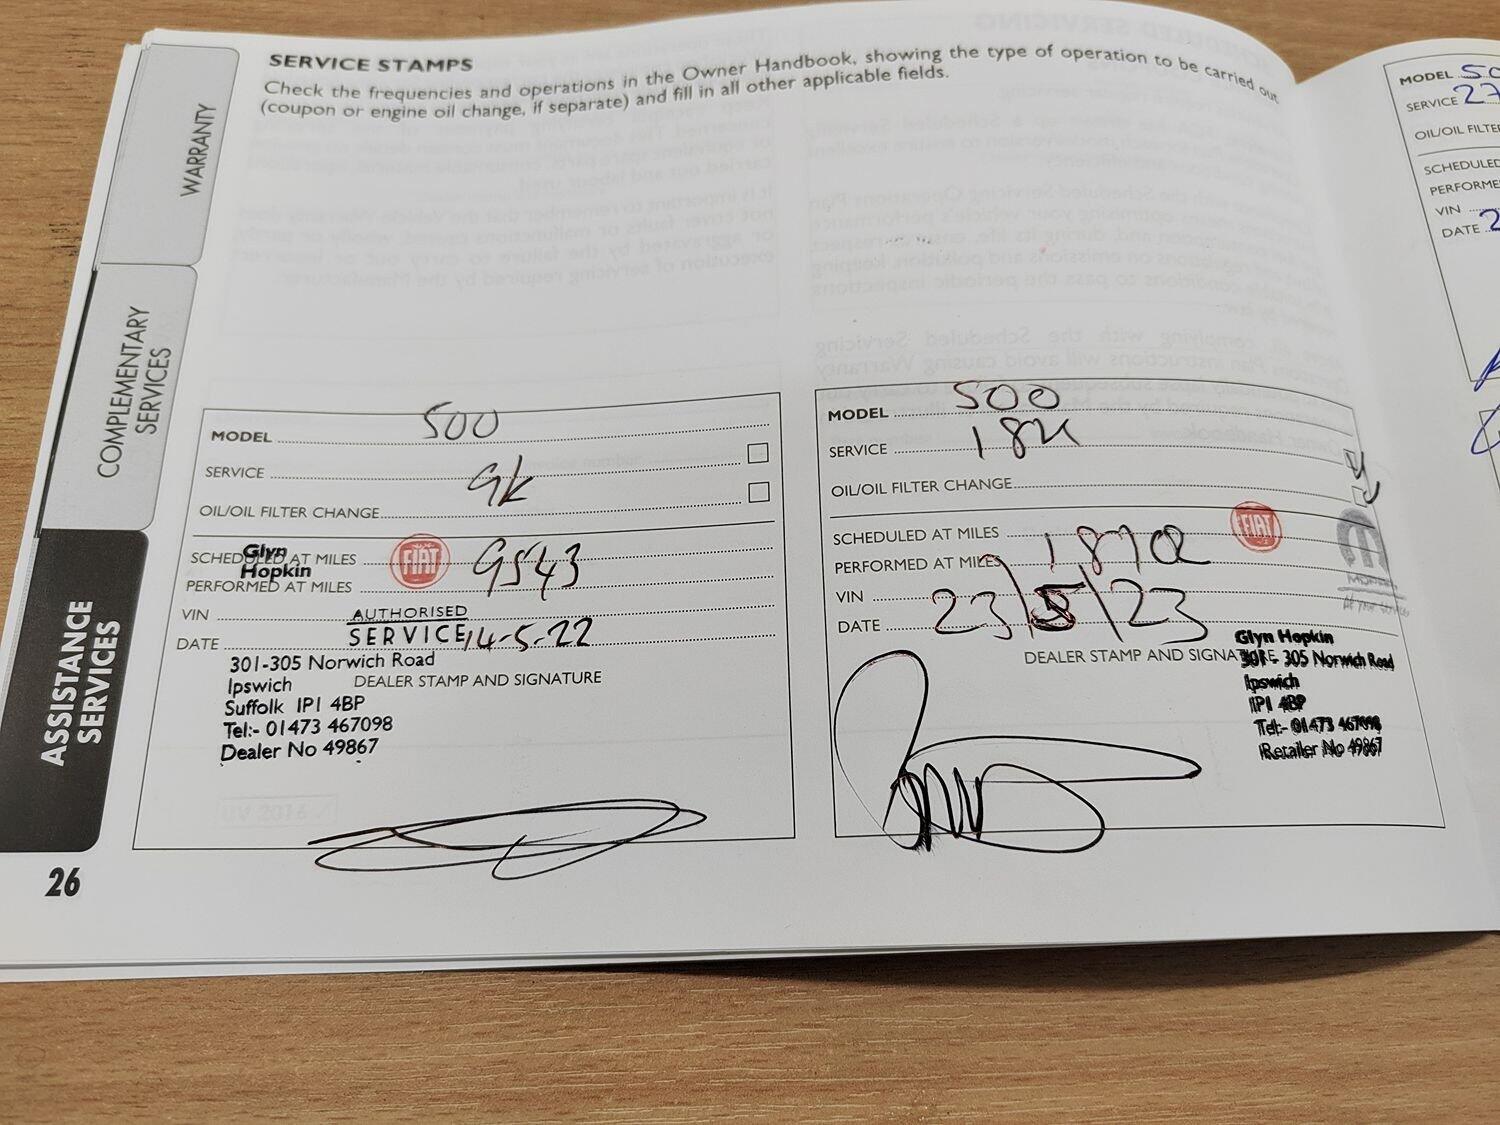 SERVICE STAMPS
Check the frequencies and operations in the Owner Handbook, showing the type of operation to be carried out
(coupon or engine oil change, if separate) and fill in all other applicable fields.
WARRANTY
COMPLEMENTARY
SERVICES
ASSISTANCE
SERVICES
MODEL 500
SERVICE 9k
OIL/OIL FILTER CHANGE
SCHEDULED AT MILES
PERFORMED AT MILES 9543
Glyn
Hopkin
FIAT
VIN
AUTHORISED
SERVICE
DATE 14-5-22
301-305 Norwich Road
Ipswich
DEALER STAMP AND SIGNATURE
Suffolk IP1 4BP
Tel:- 01473 467098
Dealer No 49867
MODEL 500
SERVICE 18K
OIL/OIL FILTER CHANGE
SCHEDULED AT MILES
FIAT
PERFORMED AT MILES
VIN
DATE 23/5/23
DEALER STAMP AND SIGNATURE
Glyn Hopkin
301 - 305 Norwich Road
Ipswich
IP1 4BP
Tel:- 01473 467098
Retailer No 49867
MODEL 50
SERVICE 27
OIL/OIL FILTE
SCHEDULED
PERFORME
VIN
DATE 2
26